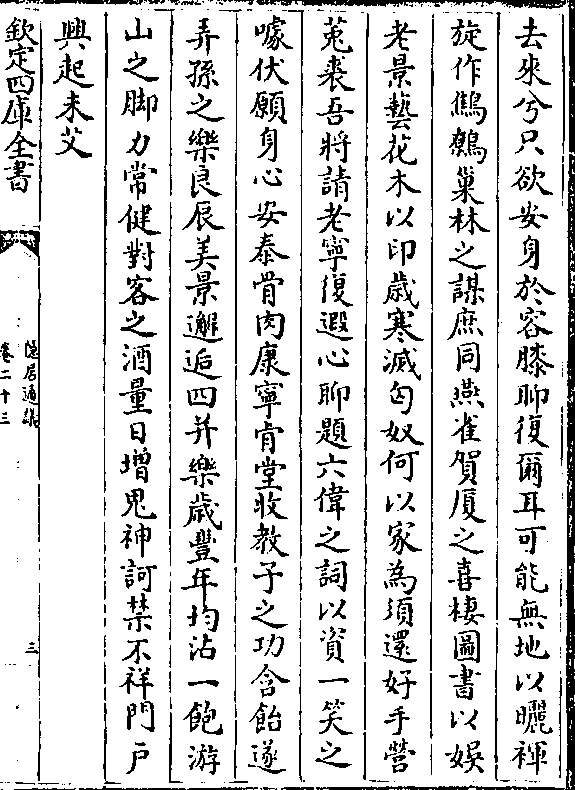 去來兮只欲安身於容膝聊復爾耳可能無地以曬褌
旋作鷦鷯巢林之謀庶同燕雀賀厦之喜棲圖書以娛
老景藝花木以印歳寒滅匈奴何以家為須還好手營
菟裘吾將請老寧復遐心聊題六偉之詞以資一笑之
噱伏願身心安泰骨肉康寧肯堂收教子之功含飴遂
弄孫之樂良辰美景邂逅四并樂歳豐年均沾一飽游
山之脚力常健對客之酒量日增鬼神訶禁不祥門户
興起未艾
欽定四庫全書
隱居通議
卷二十三
三